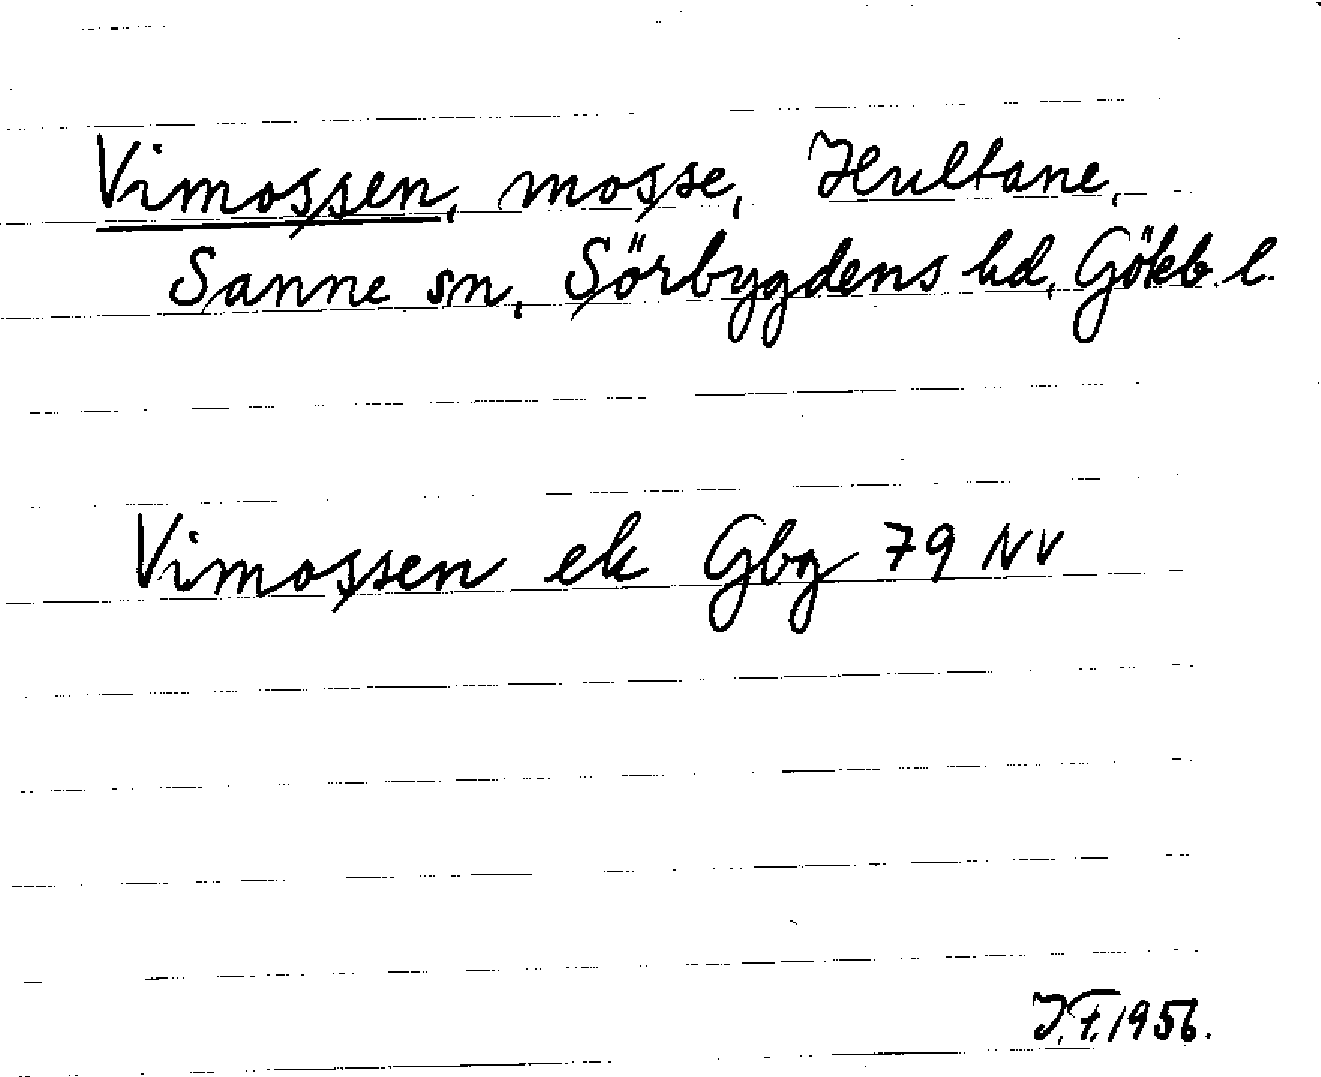 Vimossen, mosse, Hultane,
Sanne sn, Sörbygdens hd, Gökb l.
Vimossen ek Gbg 79 NV
J.F. 1956.